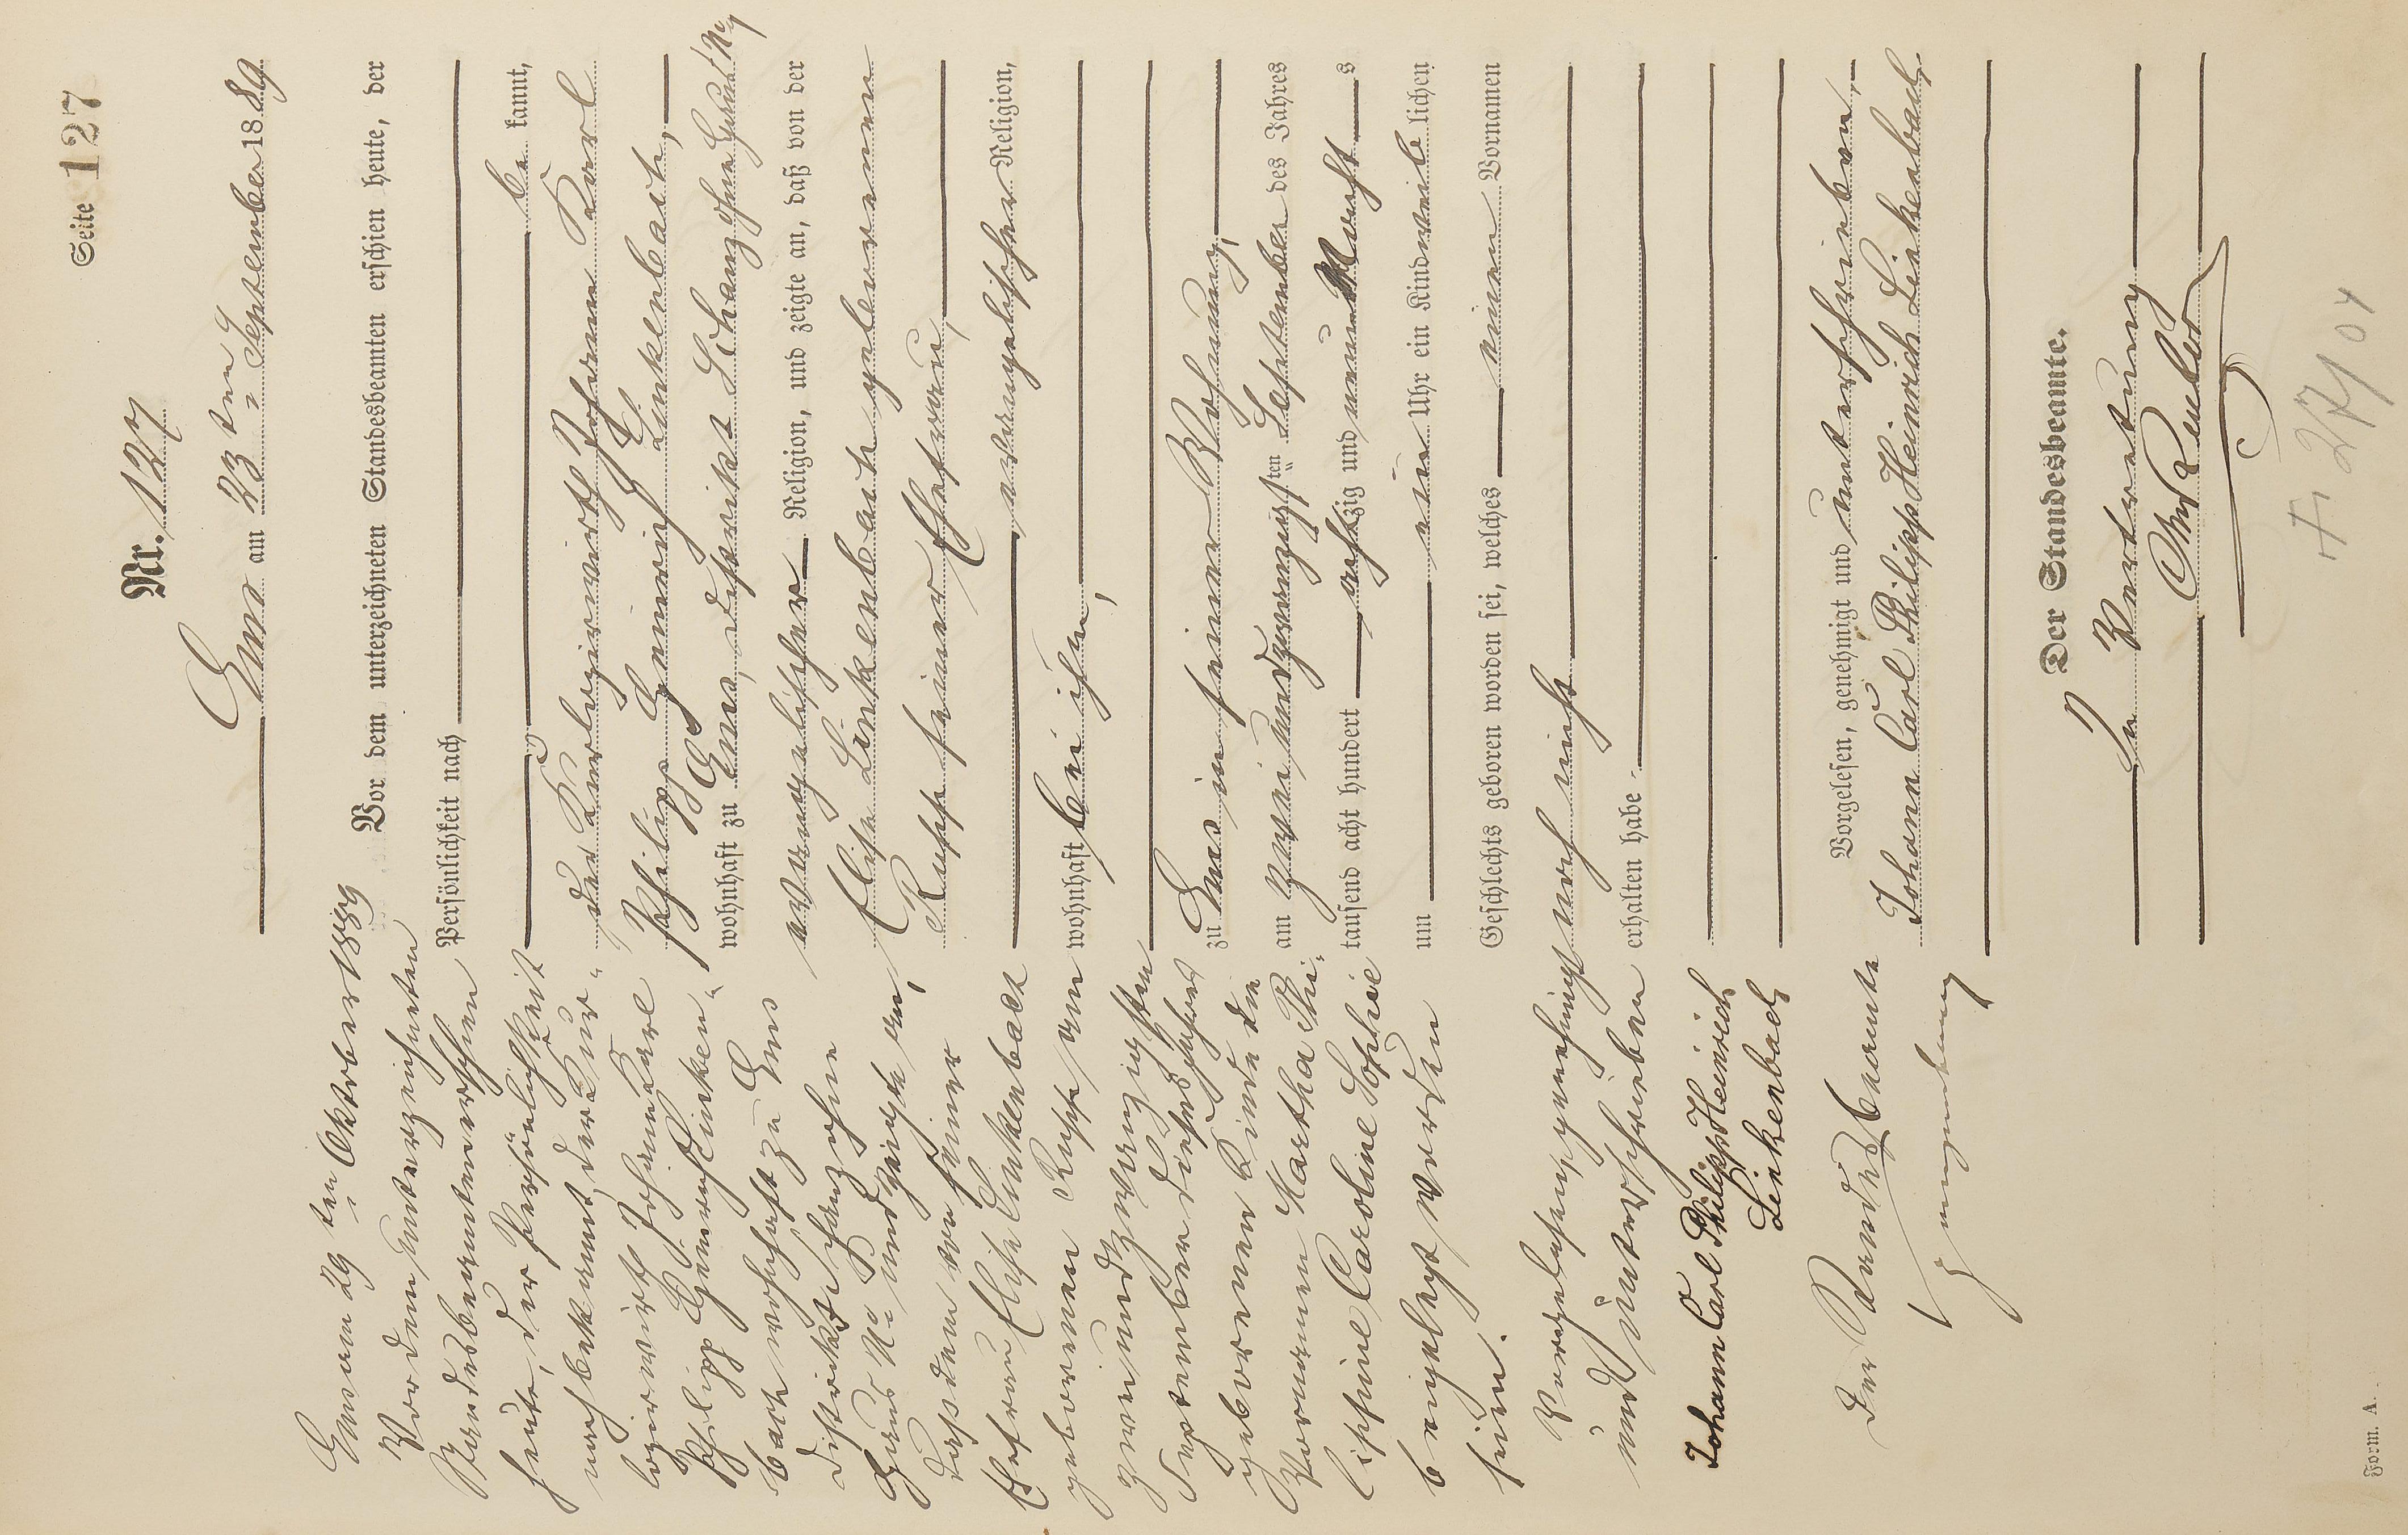 Seite 127
Nr. 127
Ems am 23 ten September 1889
Vor dem unterzeichneten Standesbeamten erschien heute, der
Persönlichkeit nach
be kannt,
der Kurlogirwirth Johann Karl
Philipp Heinrich Linkenbach,
wohnhaft zu Ems, Distrikt Schanz ohne Haus No
evangelischer Religion, und zeigte an, daß von der
Elise Linkenbach geborenen
Rupp seiner Ehefrau,
evangelischer Religion,
wohnhaft bei ihm,
zu Ems in seiner Wohnung,
am zwei und zwanzigsten ten September des Jahres
tausend acht hundert acht zig und neun Nachts
um ein Uhr ein Kind weib lichen
Geschlechts geboren worden sei, welches einen Vornamen
noch nicht
erhalten habe.
Vorgelesen, genehmigt und unterschrieben,
Johann Carl Philipp Heinrich Linkenbach
Der Standesbeamte.
In Vertretung
Ems am 29 ten Oktober 1889
Vor dem unterzeichneten
Standesbeamten erschien
heute, der Persönlichkeit
nach bekannt, der Kur-
logirwirth Johann Karl
Philipp Heinrich Linken-
bach wohnhaft zu Ems
Distrikt Schanz ohne
Haus No und zeigte an,
daß dem von seiner
Ehefrau Elise Linkenbach
geborenen Rupp am
zwei und zwanzigsten
September dieses Jahres
geborenen Kinde die
Vornamen Martha Phi-
lippine Caroline Sophie
beigelegt worden
seien.
Vorgelesen, genehmigt
und unterschrieben
Johann Carl Philipp Heinrich
Linkenbach
Der Standesbeamte
Form. A.